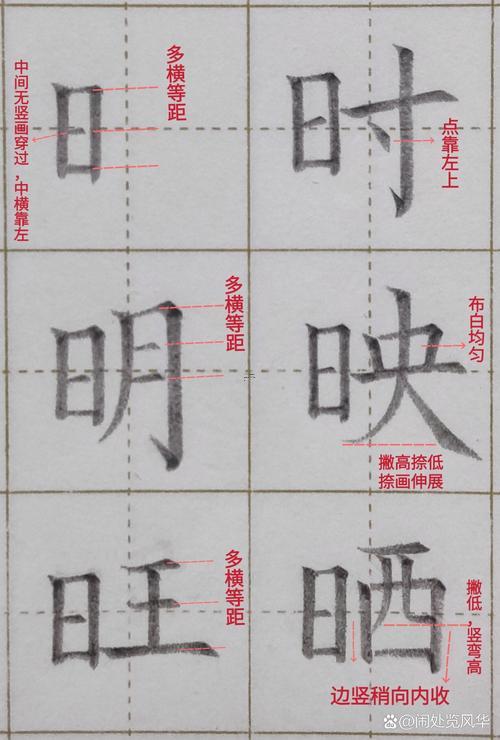 日
中间无竖画穿过，中横靠左
多横等距
时
点靠左上
明
多横等距
映
布白均匀
撇高捺低
捺画伸展
旺
多横等距
晒
撇低，竖弯高
边竖稍向内收
@闹处览风华